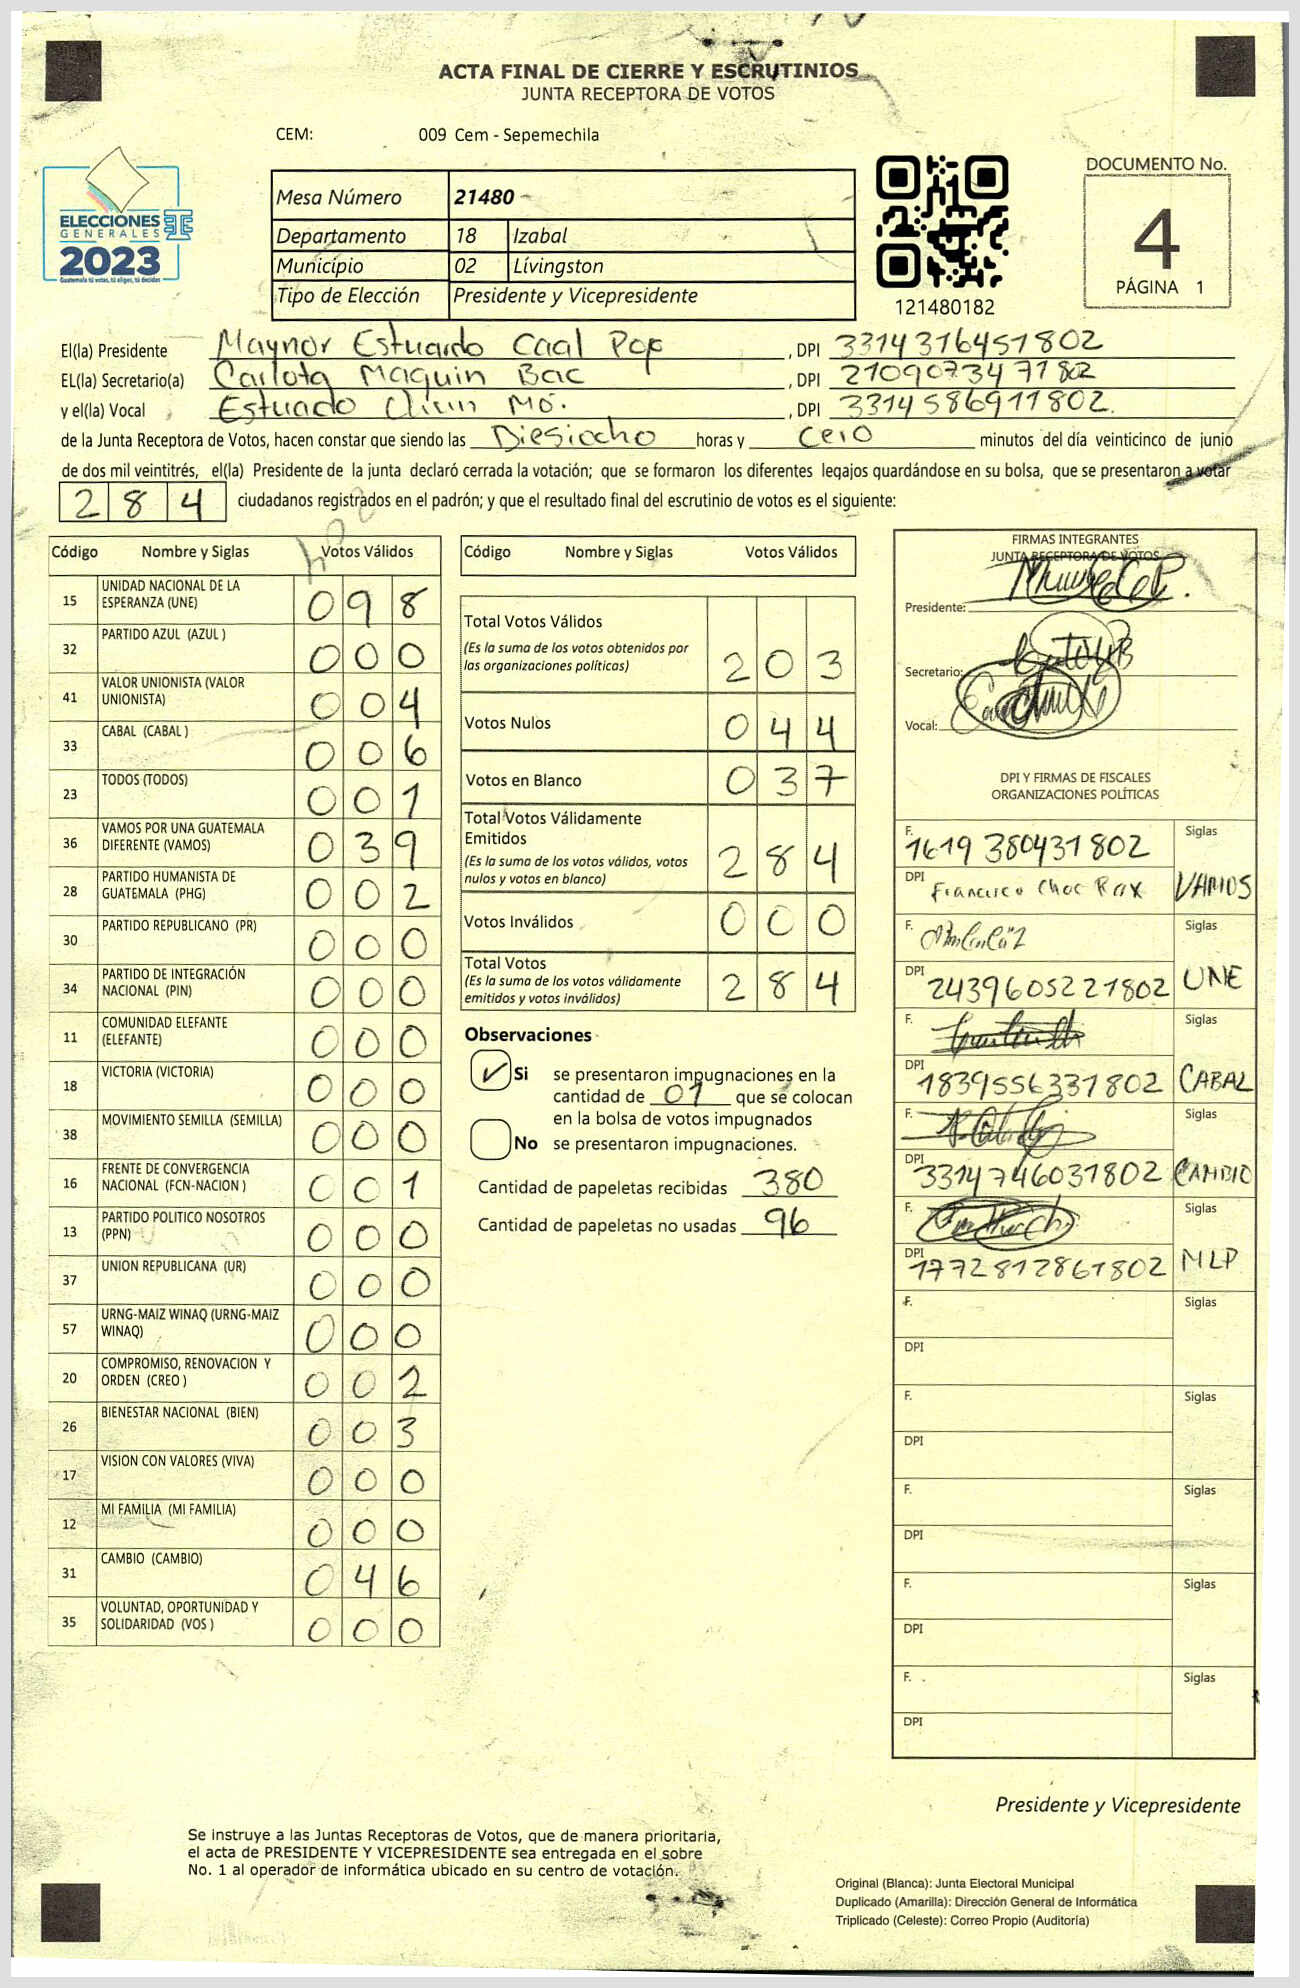 ACTA FINAL DE CIERRE Y ESCRUTINIOS
JUNTA RECEPTORA DE VOTOS
CEM: 009 Cem - Sepemechila
ELECCIONES
GENERALES
2023
Guatemala tú votas, tú eliges, tú decides
Mesa Número 21480
Departamento 18 Izabal
Municipio 02 Lívingston
Tipo de Elección Presidente y Vicepresidente
121480182
DOCUMENTO No.
4
PÁGINA 1
El(la) Presidente Maynor Estuardo Caal Pop , DPI 3314316451802
EL(la) Secretario(a) Carlota Maquin Bac , DPI 2109073471802
y el(la) Vocal Estuado Mo. , DPI 3314586911802.
de la Junta Receptora de Votos, hacen constar que siendo las Diesiocho horas y Cero minutos del día veinticinco de junio
de dos mil veintitrés, el(la) Presidente de la junta declaró cerrada la votación; que se formaron los diferentes legajos quardándose en su bolsa, que se presentaron a votar
284 ciudadanos registrados en el padrón; y que el resultado final del escrutinio de votos es el siguiente:
Código Nombre y Siglas Votos Válidos
15 UNIDAD NACIONAL DE LA ESPERANZA (UNE) 098
32 PARTIDO AZUL (AZUL ) 000
41 VALOR UNIONISTA (VALOR UNIONISTA) 004
33 CABAL (CABAL ) 006
23 TODOS (TODOS) 001
36 VAMOS POR UNA GUATEMALA DIFERENTE (VAMOS) 039
28 PARTIDO HUMANISTA DE GUATEMALA (PHG) 002
30 PARTIDO REPUBLICANO (PR) 000
34 PARTIDO DE INTEGRACIÓN NACIONAL (PIN) 000
11 COMUNIDAD ELEFANTE (ELEFANTE) 000
18 VICTORIA (VICTORIA) 000
38 MOVIMIENTO SEMILLA (SEMILLA) 000
16 FRENTE DE CONVERGENCIA NACIONAL (FCN-NACION ) 001
13 PARTIDO POLITICO NOSOTROS (PPN) 000
37 UNION REPUBLICANA (UR) 000
57 URNG-MAIZ WINAQ (URNG-MAIZ WINAQ) 000
20 COMPROMISO, RENOVACION Y ORDEN (CREO ) 002
26 BIENESTAR NACIONAL (BIEN) 003
17 VISION CON VALORES (VIVA) 000
12 MI FAMILIA (MI FAMILIA) 000
31 CAMBIO (CAMBIO) 046
35 VOLUNTAD, OPORTUNIDAD Y SOLIDARIDAD (VOS ) 000
Código Nombre y Siglas Votos Válidos
Total Votos Válidos 203
(Es la suma de los votos obtenidos por
las organizaciones políticas)
Votos Nulos 044
Votos en Blanco 037
Total Votos Válidamente
Emitidos 284
(Es la suma de los votos válidos, votos
nulos y votos en blanco)
Votos Inválidos 000
Total Votos 284
(Es la suma de los votos válidamente
emitidos y votos inválidos)
Observaciones
Si se presentaron impugnaciones en la
cantidad de 01 que se colocan
en la bolsa de votos impugnados
No se presentaron impugnaciones.
Cantidad de papeletas recibidas 380
Cantidad de papeletas no usadas 96
FIRMAS INTEGRANTES
JUNTA RECEPTORA DE VOTOS
Presidente:
Secretario:
Vocal:
DPI Y FIRMAS DE FISCALES
ORGANIZACIONES POLÍTICAS
F. 1619 380431802 Siglas
DPI Francisco Choc Rax VAMOS
F. Siglas
DPI 2439605221802 UNE
F. Siglas
DPI 1839556331802 CABAL
F. Siglas
DPI 3314746031802 CAMBIO
F. Siglas
DPI 1772812861802 MLP
F. Siglas
DPI
F. Siglas
DPI
F. Siglas
DPI
F. Siglas
DPI
F. Siglas
DPI
Presidente y Vicepresidente
Se instruye a las Juntas Receptoras de Votos, que de manera prioritaria,
el acta de PRESIDENTE Y VICEPRESIDENTE sea entregada en el sobre
No. 1 al operador de informática ubicado en su centro de votación.
Original (Blanca): Junta Electoral Municipal
Duplicado (Amarilla): Dirección General de Informática
Triplicado (Celeste): Correo Propio (Auditoría)